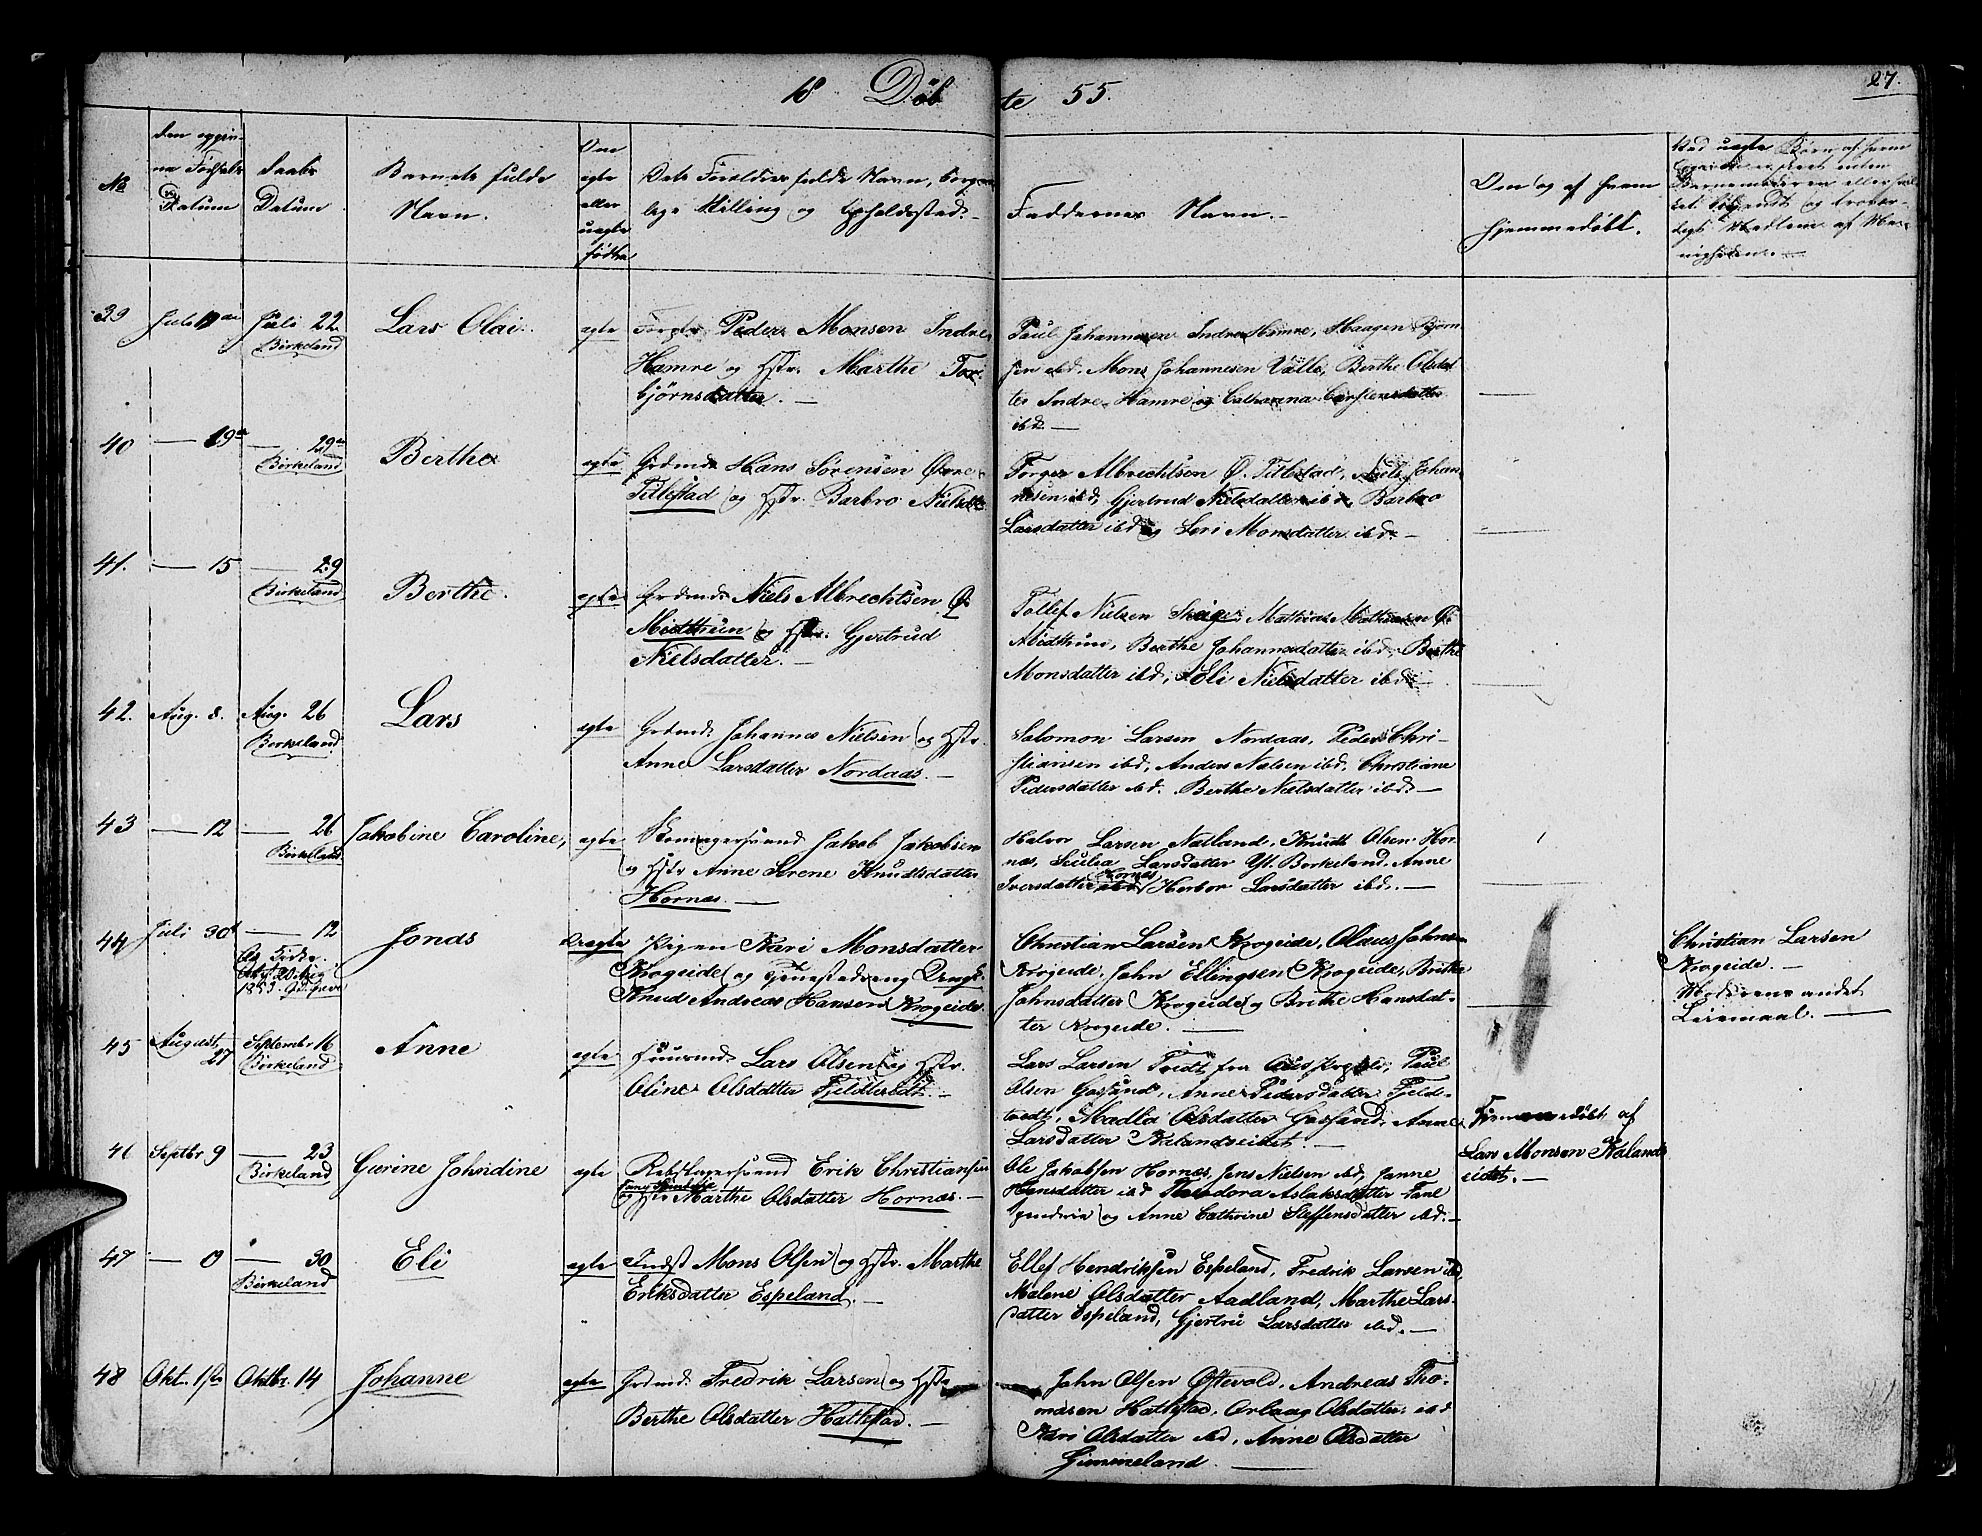 18 Döbte 55.
27.
No
den opgivne Fødsels Datum
Daabs Datum
Barnets fulde Navn.
Om ægte eller uægte födte
Dets Forældres fulde Navn, borgerlige Stilling og Opholdssted.
Faddernes Navn.
Om og af hvem hjemmedøbt.
39
Juli
Juli 22
Birkeland
Lars Olai
ægte
Peder Monsen Indre
Hamre og Hstr. Marthe Tor-
bjørnsdatter. —
Paul Johannesen Indre Hamre, Haagen
ibd. Mons Johannesen Välle, Berthe Olsdat-
ter Indre Hamre og Catharina
ibd. —
40
— 19
— 29
Birkeland
Berthe
ægte
Grdmd. Hans Sørensen Øvre
Titlestad og Hstr. Barbro
Torger Albrechtsen Ø. Titlestad, Niels Johan-
nesen ibd, Gjertrud Nielsdatter ibd, Barbro
Larsdatter ibd og Monsdatter ibd. —
41.
— 15
— 29
Birkeland
Berthe.
ægte
Grdmd. Niels Albrechtsen Ø.
Midthun og Hstr. Gjertrud
Nielsdatter. —
Tollef Nielsen Skage, Mathias Ø.
Midthun, Berthe Johannesdatter ibd, Berthe
Monsdatter ibd, Eli Nielsdatter ibd. —
42.
Aug. 8.
Aug. 26
Birkeland
Lars
ægte
Grdmd. Johannes Nielsen og Hstr.
Anne Larsdatter Nordaas. —
Salomon Larsen Nordaas, Peder Chri-
stiansen ibd, Anders Nielsen ibd, Christiane
Pedersdatter ibd. Berthe Nielsdatter ibd. —
43
— 12
— 26
Birkeland
Jakobine Caroline,
ægte
Jakob Jakobsen
og Hstr Anne Serene Knudsdatter
Hornæs. —
Halvor Larsen Natland, Knudt Olsen Hor-
næs, Larsdatter Birkeland, Anne
Iversdatter Hornæs Herbor Larsdatter ibd. —
44
Juli 30
— 12
1853
Jonas
Uægte
Pigen Kari Monsdatter
Krogeide og
Knud Andreas Hansen Krogeide.
Christian Larsen Krogeide, Olaus Johns-
Krogeide, John Ellingsen Krogeide, Brithe
Johnsdatter Krogeide og Brithe Hansdat-
ter Krogeide. —
Christian Larsen
Krogeide. —
Moderens andet
Leiermaal. —
45
August 27
September 16
Birkeland
Anne
ægte
Huusmd. Lars Olsen og Hstr.
Oline Olsdatter Fjeldtvedt. —
Lars Larsen Tvedt fra Paul
Olsen Anne Pedersdatter Fjeld-
tvedt, Madla Olsdatter Anne
Larsdatter Kalandseidet. —
46
Septbr 9
— 23
Birkeland
Gurine Johndine
ægte
Rebslagersvend Erik Christiansen
og Hstr Marthe Olsdatter Hornæs. —
Ole Jakobsen Hornæs, Jens Nielsen ibd, Janne
Hansdatter ibd Theodora Aslaksdatter
og Anne Cathrine Steffensdatter ibd. —
Hjemmedøbt af
Lars Monsen Kalands-
eidet. —
47
— 9
— 30
Birkeland
Eli
ægte
Indst Mons Olsen og Hstr. Marthe
Eriksdatter Espeland. —
Ellef Hendriksen Espeland, Fredrik Larsen ibd,
Malene Olsdatter Aadland, Marthe Lars-
datter Espeland, Gjertru Larsdatter ibd. —
48
Okt. 1ste
Oktbr. 14
Johanne
ægte
Grdmd. Fredrik Larsen og Hstr
Berthe Olsdatter Hatlestad. —
John Olsen Øftevold, Andreas Tho-
masen Hatlestad, Olsdatter ibd
Kari Olsdatter ibd, Anne Olsdatter
Gimmeland. —